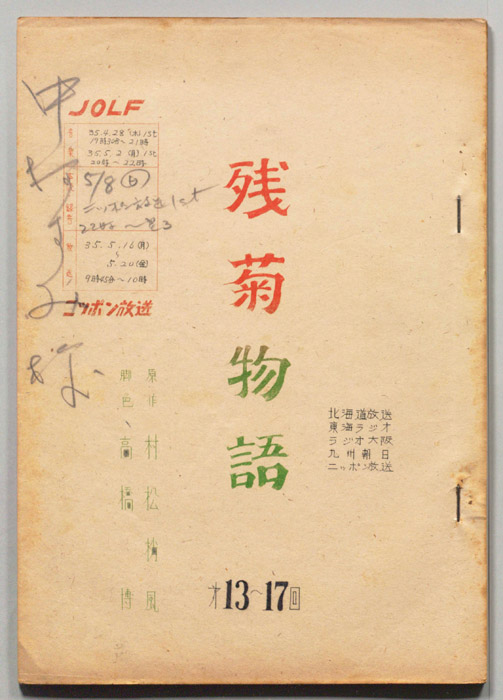 JOLF
35.4.28(木)1st
19時30分〜21時
35.5.2(月)1st
20時〜22時
5/8(日)
ニッポン放送1st
22時〜
35.5.16(月)
〜
5.20(金)
9時45分〜10時
ニッポン放送
残菊物語
原作 村松梢風
脚色 高橋博
北海道放送
東海ラジオ
ラジオ大阪
九州朝日
ニッポン放送
才13〜17回